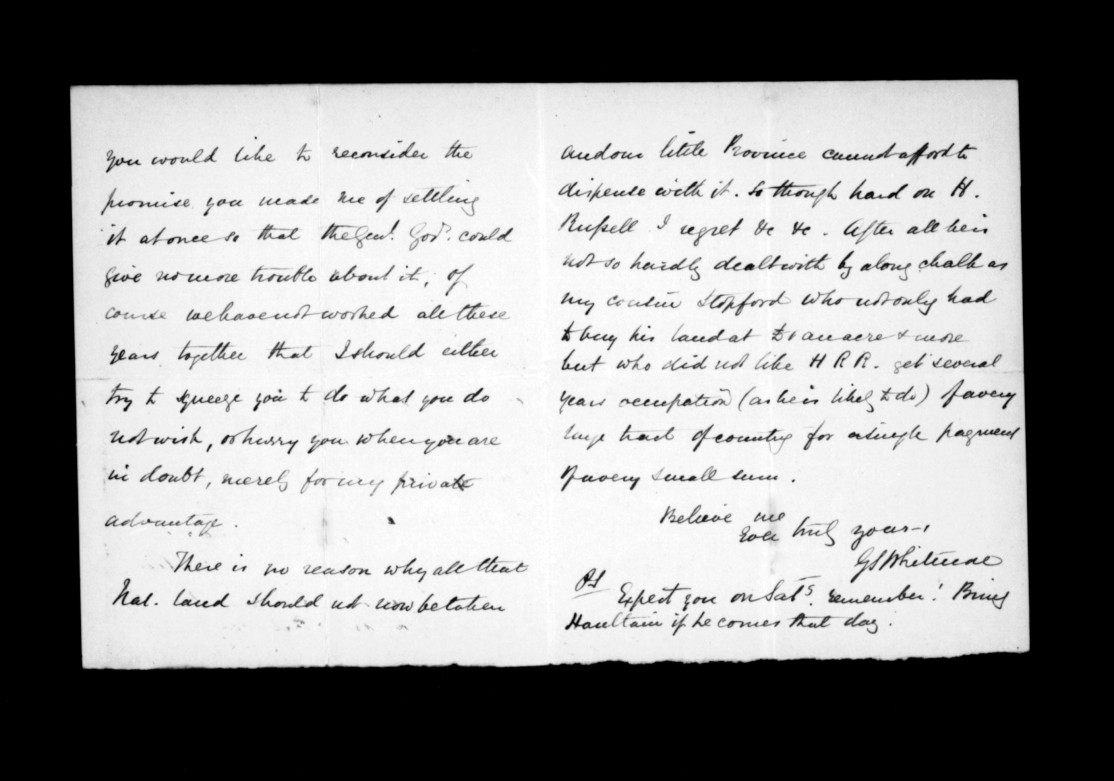 you would like to reconsider the
promise you made me of settling
it at once so that the Genl. Govt. could
give no more trouble about it, of
course we have not worked all these
years together that I should either
try to squeeze you to do what you do
not wish, or hurry you when you are
in doubt, merely for my private
advantage.
There is no reason why all that
Nat. land should not now be taken
and our little Province cannot afford to
dispense with it. So though hard on H.
Russell I regret &c &c. After all he is
not so hardly dealt with by a long chalk as
my cousin Stopford who not only had
to buy his land at £1 an acre & more
but who did not like H R R. get several
years occupation (as he is likely to do) of a very
large tract of country for a single payment
of a very small sum.
Believe me
Ever truly yours
G S Whitmore
PS
Expect you on Saty. remember! Bring
Haultain if he comes that day.